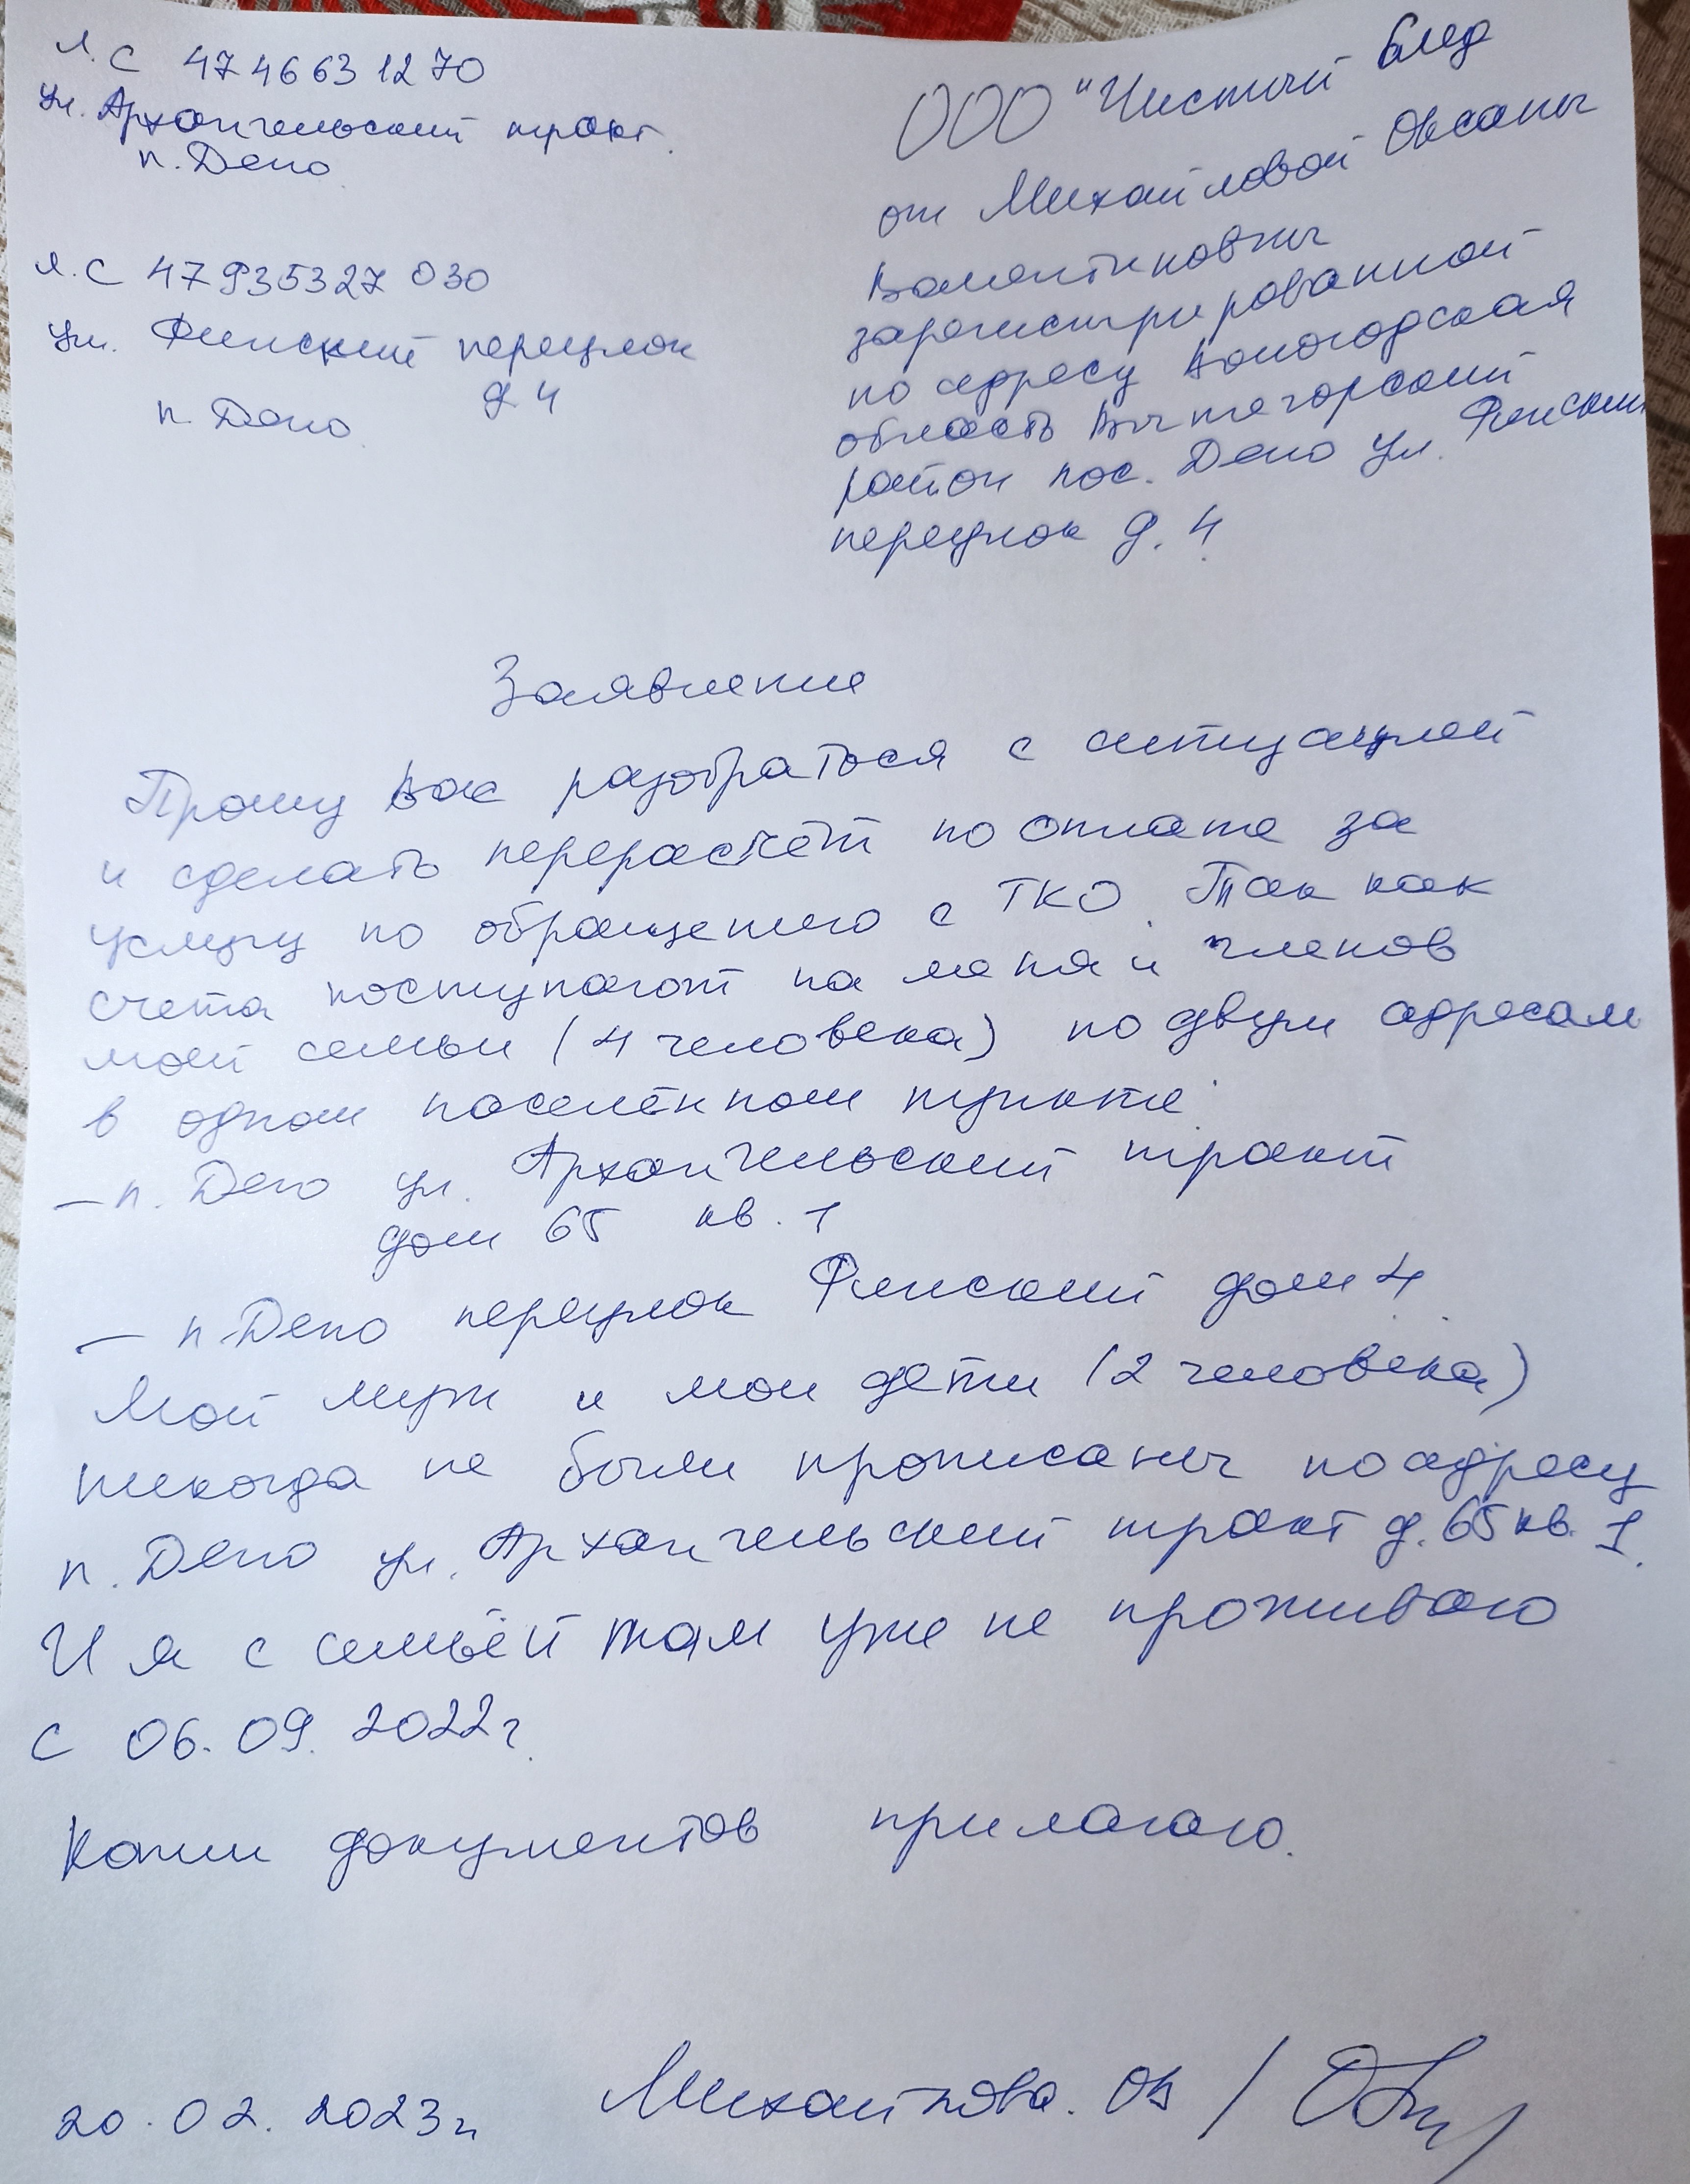 л.с 4746631270
ул. Архангельский тракт.
п. Депо
л.с 47935327030
ул. Финский переулок
д 4
п. Депо.
ООО "Чистый след
от Михайловой Оксаны
Валентиновны
зарегистрированной
по адресу Вологодская
область Вытегорский
район пос. Депо ул. Финский
переулок д. 4
Заявление
Прошу Вас разобраться с ситуацией
и сделать перерасчёт по оплате за
услугу по обращению с ТКО. Так как
счета поступают на меня и членов
моей семьи (4 человека) по двум адресам
в одном населённом пункте:
- п. Депо ул. Архангельский тракт
дом 65 кв. 1
- п.Депо переулок Финский дом 4.
Мой муж и мои дети (2 человека)
никогда не были прописаны по адресу
п. Депо ул. Архангельский тракт д. 65 кв. 1.
И я с семьёй там уже не проживаю
с 06.09.2022г.
Копии документов прилагаю.
20.02.2023г Михайлова. ОВ /